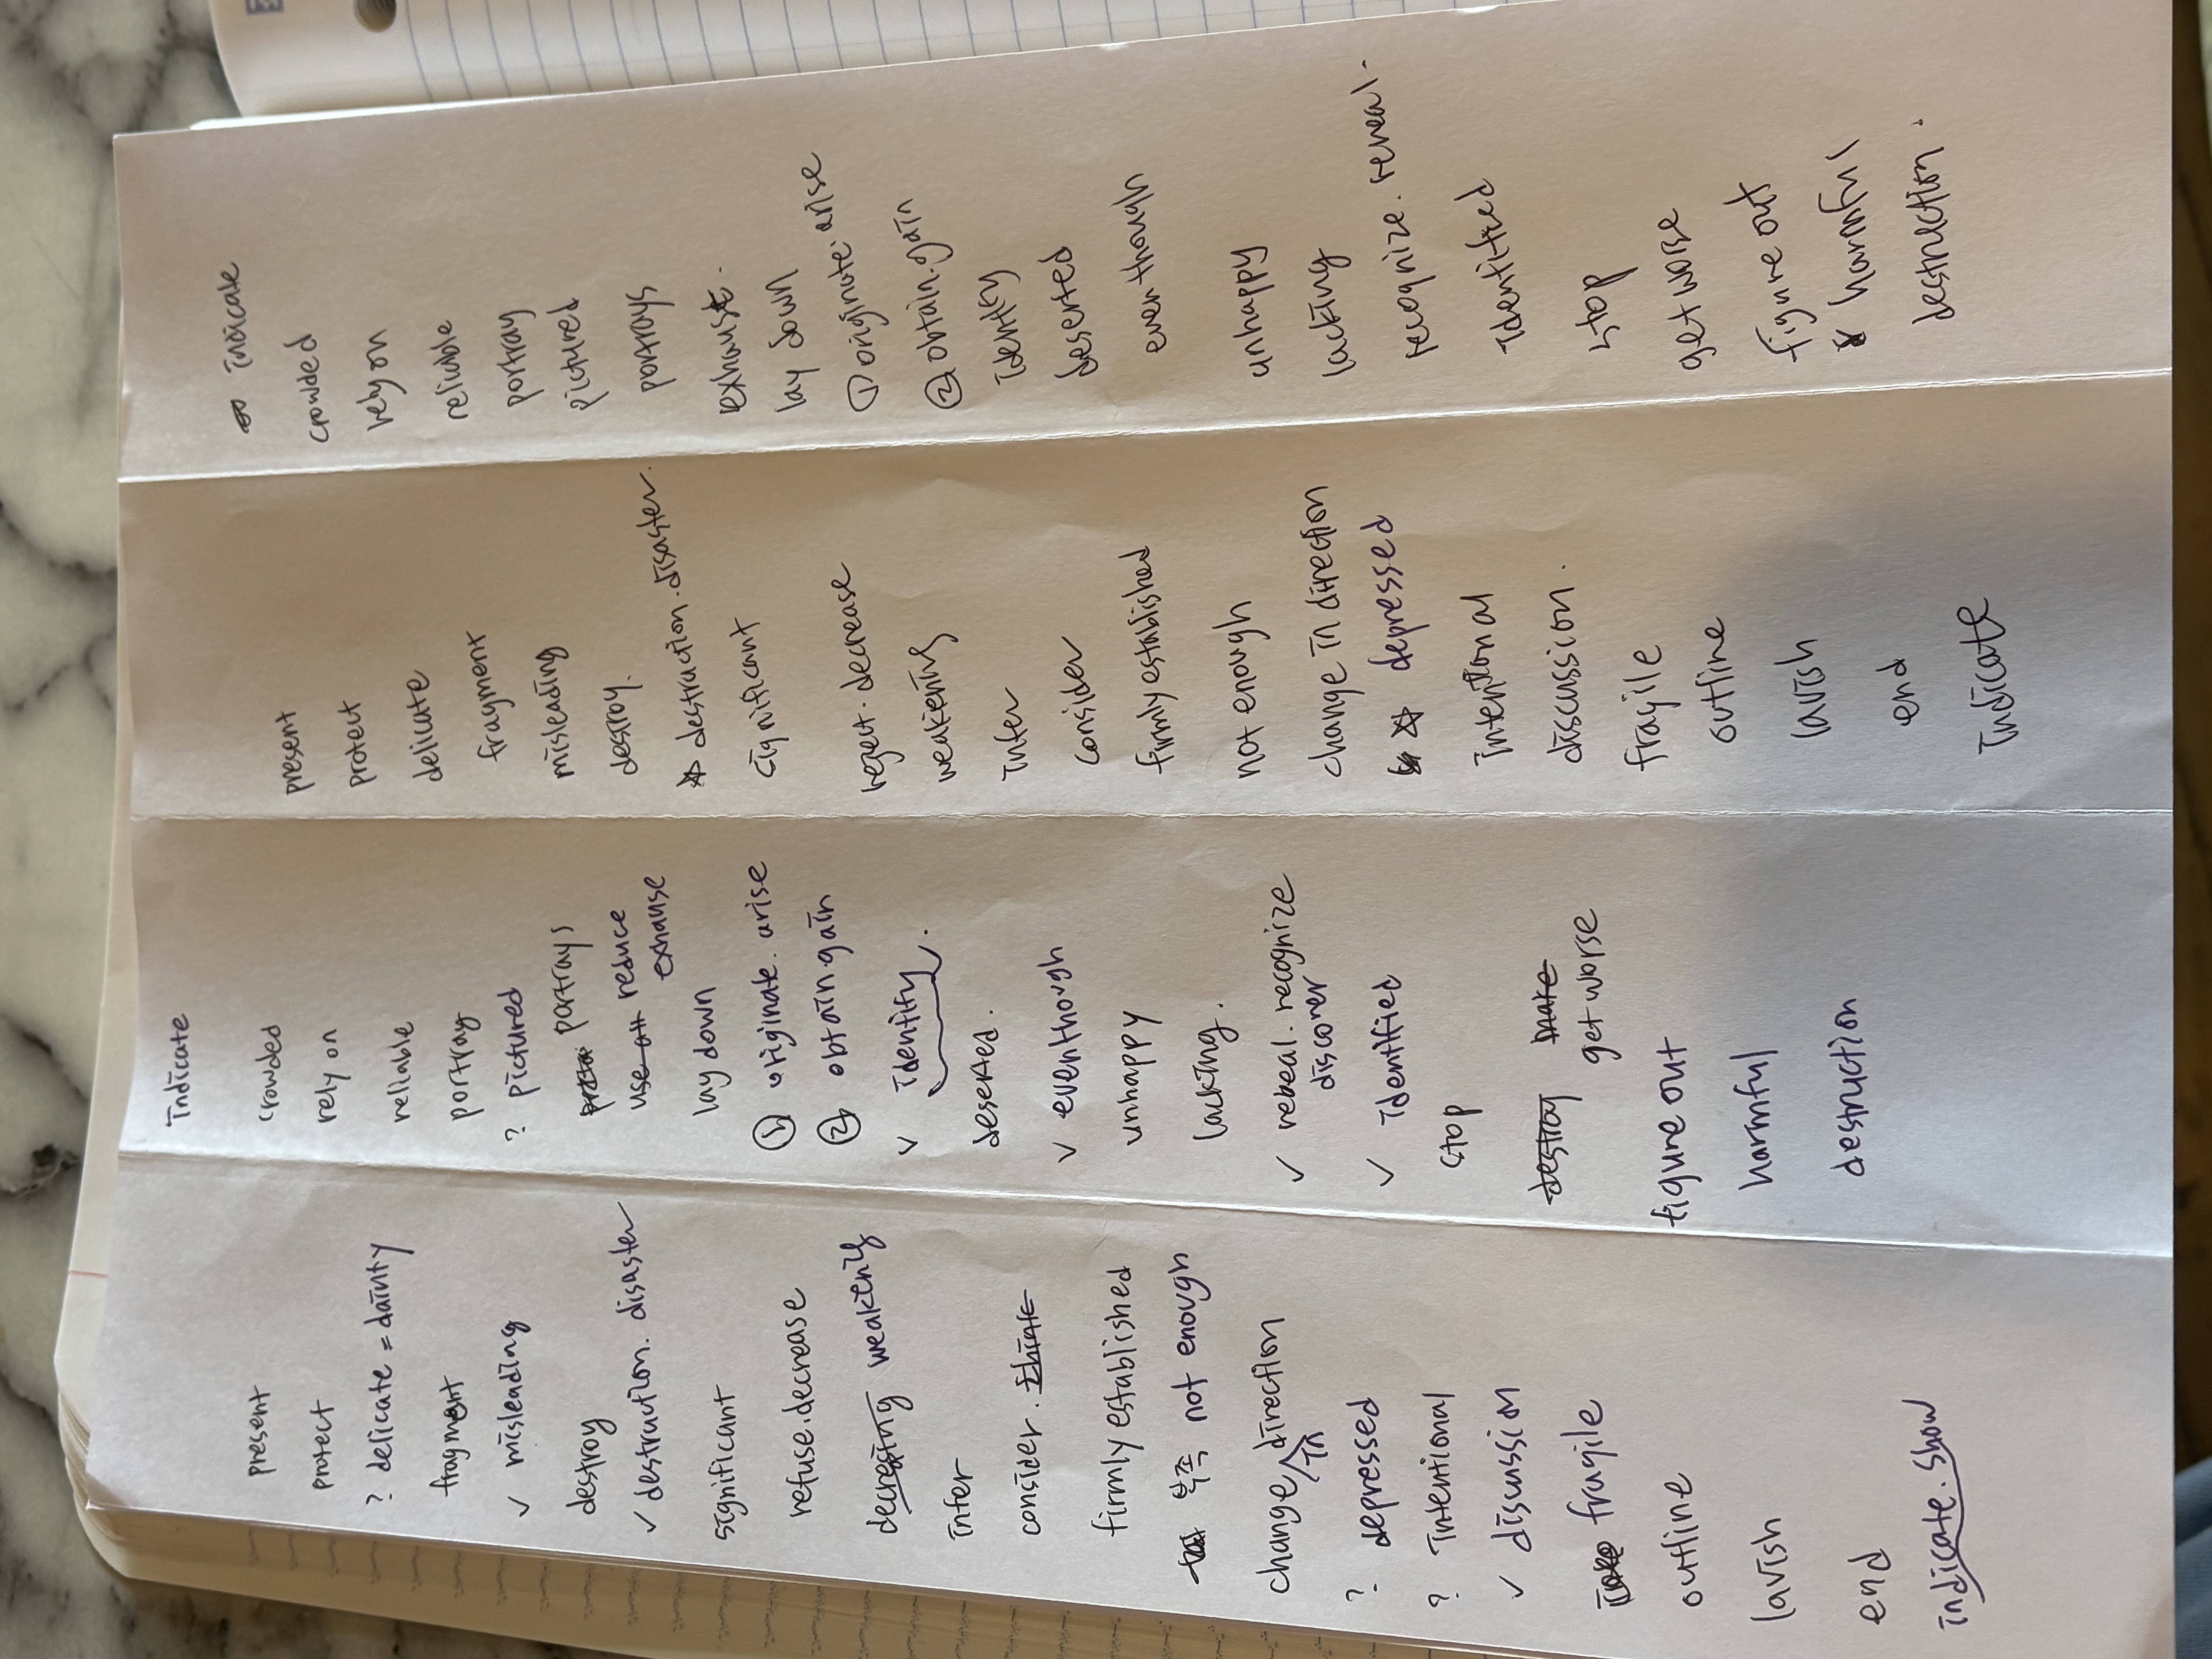 present
protect
? delicate = dainty
fragment
✓ misleading
destroy
✓ destruction. disaster
significant
refuse. decrease
decreasing weakening
infer
consider. think
firmly established
부족 not enough
change in direction
? depressed
? intentional
✓ discussion
fragile
outline
lavish
end
indicate. show
indicate
crowded
rely on
reliable
portray
? pictured
portrays
reduce
exhause
lay down
① originate. arise
② obtain. gain
✓ identify.
deserted.
✓ eventhough
unhappy
lacking.
✓ reveal. recognize
discover
✓ identified
stop
destroy make
get worse
figure out
harmful
destruction
present
protect
delicate
fragment
misleading
destroy.
☆ destruction. disaster.
significant
reject. decrease
weakening
infer
consider
firmly established
not enough
change in direction
☆ depressed
intentional
discussion.
fragile
outline
lavish
end
indicate
indicate
crowded
rely on
reliable
portray
pictured
portrays
exhaust.
lay down
① originate. arise
② obtain. gain
identify
deserted
eventhough
unhappy
lacking
recognize. reveal.
identified
stop
get worse
figure out
harmful
destrection.